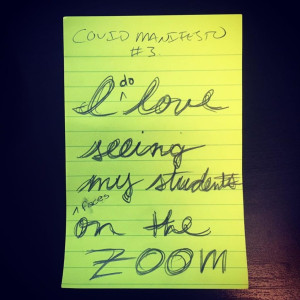 COVID MANIFESTO
#3
I do love
seeing
my students
faces
on the
ZOOM